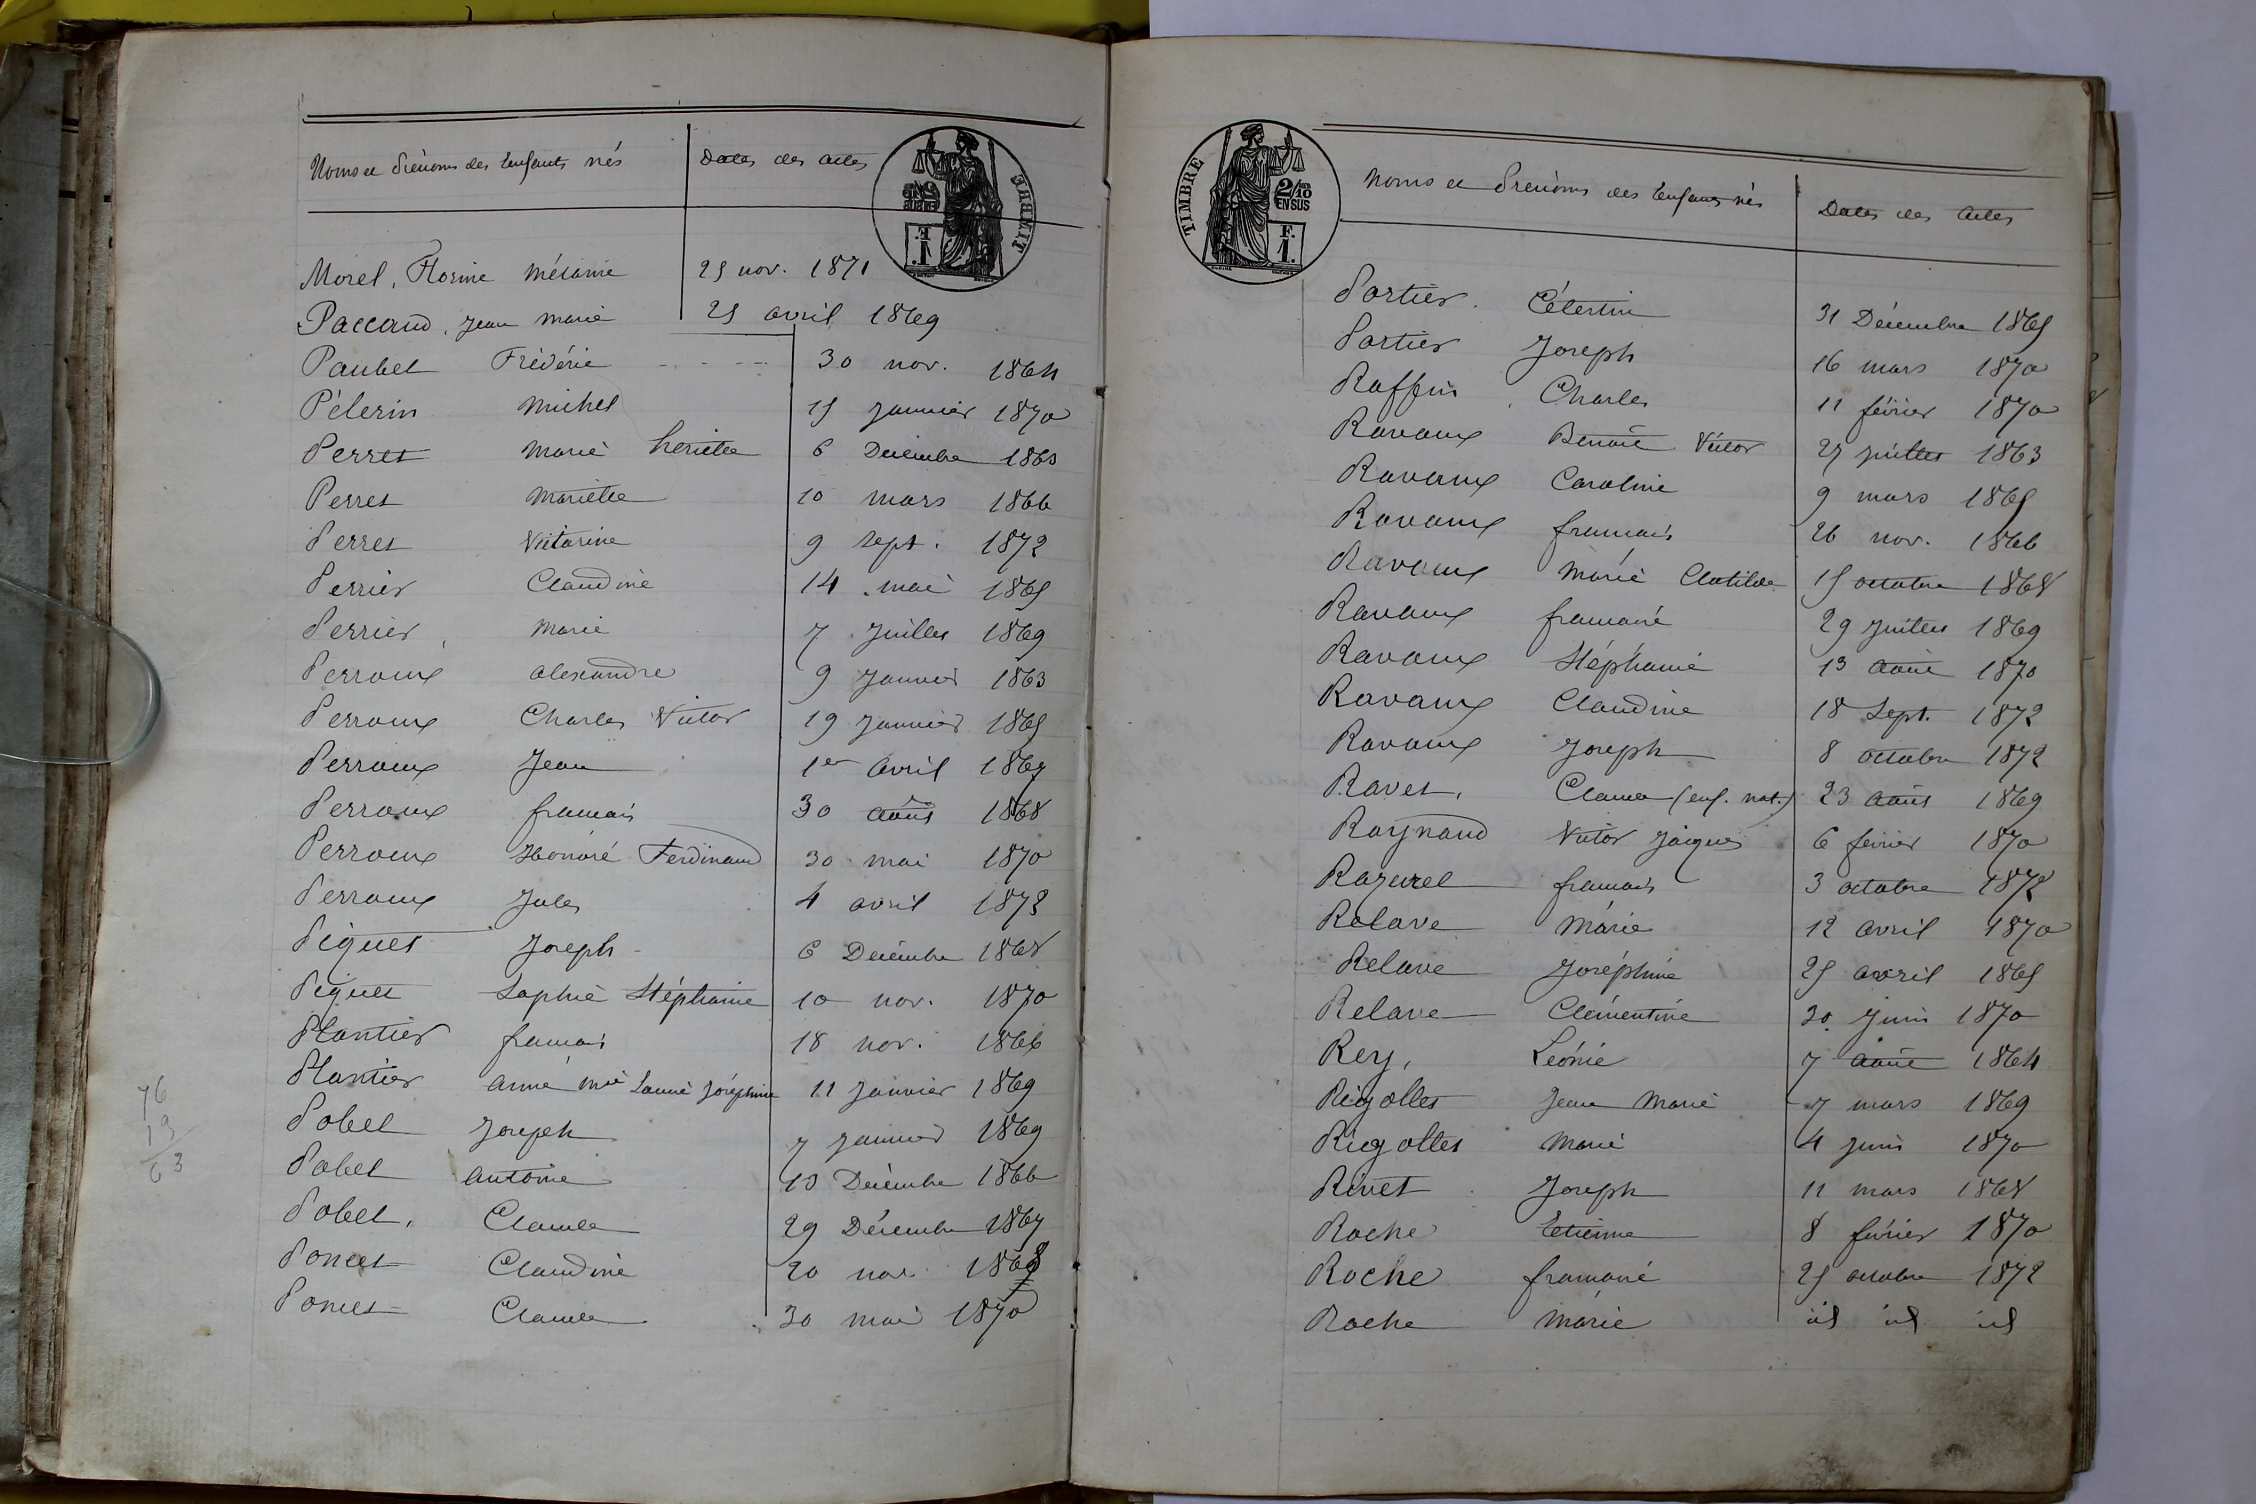 Noms et Prénoms des Enfants nés Dates des actes
Morel, Florine Mélanie 25 nov. 1871
Paccaud, Jean Marie 25 avril 1869
Paubel Frédéric 30 nov. 1864
Pélerin Michel 15 Janvier 1870
Perret Marie heriette 6 Décembre 1863
Perret Mariette 10 mars 1866
Perret Victorine 9 sept. 1872
Perrier Claudine 14 mai 1865
Perrier, Marie 7 Juillet 1869
Perroux alexandre 9 Janvier 1863
Perroux Charles Victor 19 Janvier 1865
Perroux Jean 1er Avril 1867
Perroux francois 30 août 1868
Perroux Honoré Ferdinand 30 mai 1870
Perroux Jules 4 avril 1872
Piquet Joseph 6 Décembre 1868
Piquet Sophie Stéphanie 10 nov. 1870
Plantier francois 18 nov. 1866
Plantier anne Mie Joséphine 11 Janvier 1869
Pobel Joseph 7 Janvier 1869
Pobel antoine Décembre 1866
Pobel, Claude 29 Décembre 1867
Poncet Claudine 20 nov. 1868
Poncet Claude 30 mai 1870
76
13
63
TIMBRE
2/10
EN SUS
1 F.
Noms et Prénoms des Enfants nés Dates des Actes
Portier Célestin 31 Décembre 1865
Portier Joseph 16 mars 1870
Raffin Charles 11 février 1870
Ravaux Benoît Victor 27 juillet 1863
Ravaux Caroline 9 mars 1865
Ravaux francois 26 nov. 1866
Ravaux Marie Clotilde 15 octobre 1868
Ravaux francoise 29 Juillet 1869
Ravaux Stéphanie 13 août 1870
Ravaux Claudine 18 Sept. 1872
Ravaux Joseph 8 octobre 1872
Ravet, Claude (enf. nat.) 23 août 1869
Raynaud Victor Jacques 6 février 1870
Razurel francois 3 octobre 1872
Relave Marie 12 avril 1870
Relave Joséphine 25 avril 1865
Relave Clémentine 30 Juin 1870
Rey, Léonie 7 août 1864
Rigollet Jean Marie 7 mars 1869
Rigollet Marie 4 juin 1870
Rivet Joseph 11 mars 1868
Roche Etienne 8 février 1870
Roche francoise 25 octobre 1872
Roche Marie id id id